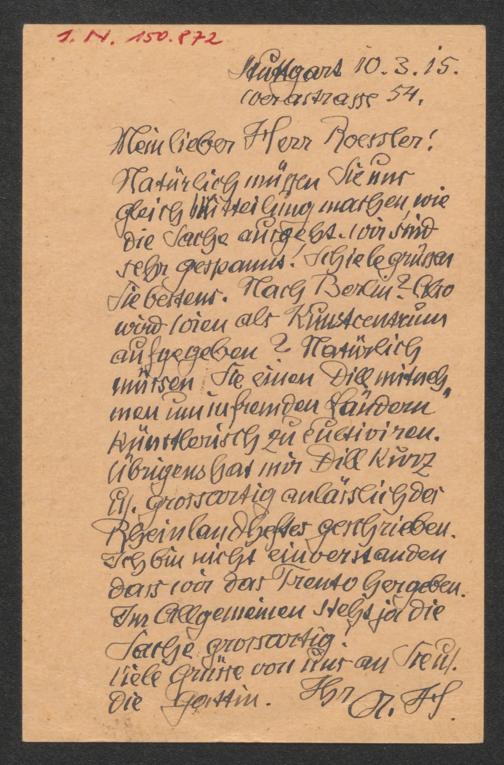 I. N. 150.872
Stuttgart 10.3.15.
Werastrasse 54.
Mein lieber Herr Roessler!
Natürlich müssen Sie uns
gleich Mitteilung machen, wie
die Sache ausgeht. Wir sind
sehr gespannt! Schiele grüssen
Sie bestens. Nach Berlin? Also
wird Wien als Kunstcentrum
aufgegeben? Natürlich
müssen Sie einen Dill mitneh-
men um in fremden Ländern
künstlerisch zu cultiviren.
Übrigens hat mir Dill kurz
u. grossartig anlässlich des
Rheinlandheftes geschrieben.
Ich bin nicht einverstanden
dass wir das Trento hergeben.
Im Allgemeinen steht ja die
Sache grossartig!
Liebe Grüsse von uns an Sie u.
die Gattin. Ihr